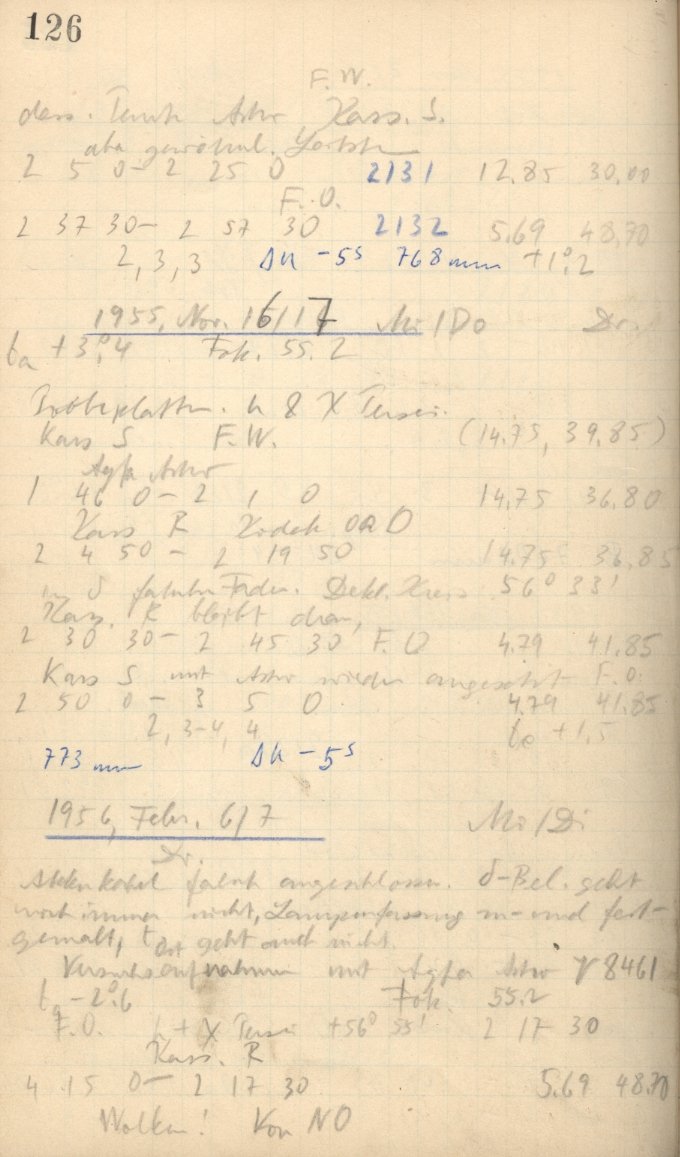 126
F.W.
dess. Astro Kass. S.
aber gewöhnl.
2 5 0 - 2 25 0 2131 12.85 30.00
F.O.
2 37 30 - 2 57 30 2132 5.69 48,70
2,3,3 Δu -5ˢ 768 mm +1°.2
1955, Nov. 16/17 Mi/Do
tₐ +3°.4 Fok. 55.2
Probeplatten. h & χ Persei.
Kass S F.W. (14.75, 39.85)
Agfa Astro
1 46 0 - 2 1 0 14,75 36.80
Kass R Kodak OaO
2 4 50 - 2 19 50 14.75 36,85
in δ Dekl. Kreis 56° 33'
Kass. R bleibt dran,
2 30 30 - 2 45 30 F.O 4.79 41.85
Kass S mit Astro wieder angesetzt F.O.
2 50 0 - 3 5 0 4.79 41.85
2, 3-4, 4 tₑ +1,5
773 mm Δu -5ˢ
1956, Febr. 6/7 Mo/Di
Dr.
falsch angeschlossen. δ-Bel. geht
noch immer nicht, Lampenfassung und fest-
gemalt, geht auch nicht.
Versuchsaufnahmen mit Agfa Astro 8461
tₐ -2°.6 Fok. 55.2
F.O. h + χ Persei +56° 55' 2 17 30
Kass. R
4 15 0 - 2 17 30 5.69 48.70
Wolken! Von NO